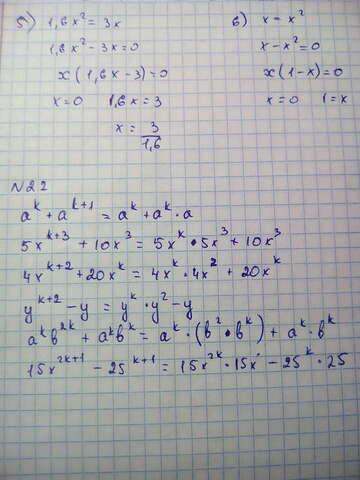 5) 1,6x² = 3x
1,6x² - 3x = 0
x(1,6x - 3) = 0
x = 0 1,6x = 3
x = 3/1,6
6) x - x²
x - x² = 0
x(1 - x) = 0
x = 0 1 = x
N22
a^k + a^(k+1) = a^k + a^k · a
5x^(k+3) + 10x³ = 5x^k · 5x³ + 10x³
4x^(k+2) + 20x^k = 4x^k · 4x² + 20x^k
y^(k+2) - y = y^k · y² - y
a^k b^(2k) + a^k b^k = a^k · (b² · b^k) + a^k · b^k
15x^(2k+1) - 25^(k+1) = 15x^(2k) · 15x - 25^k · 25